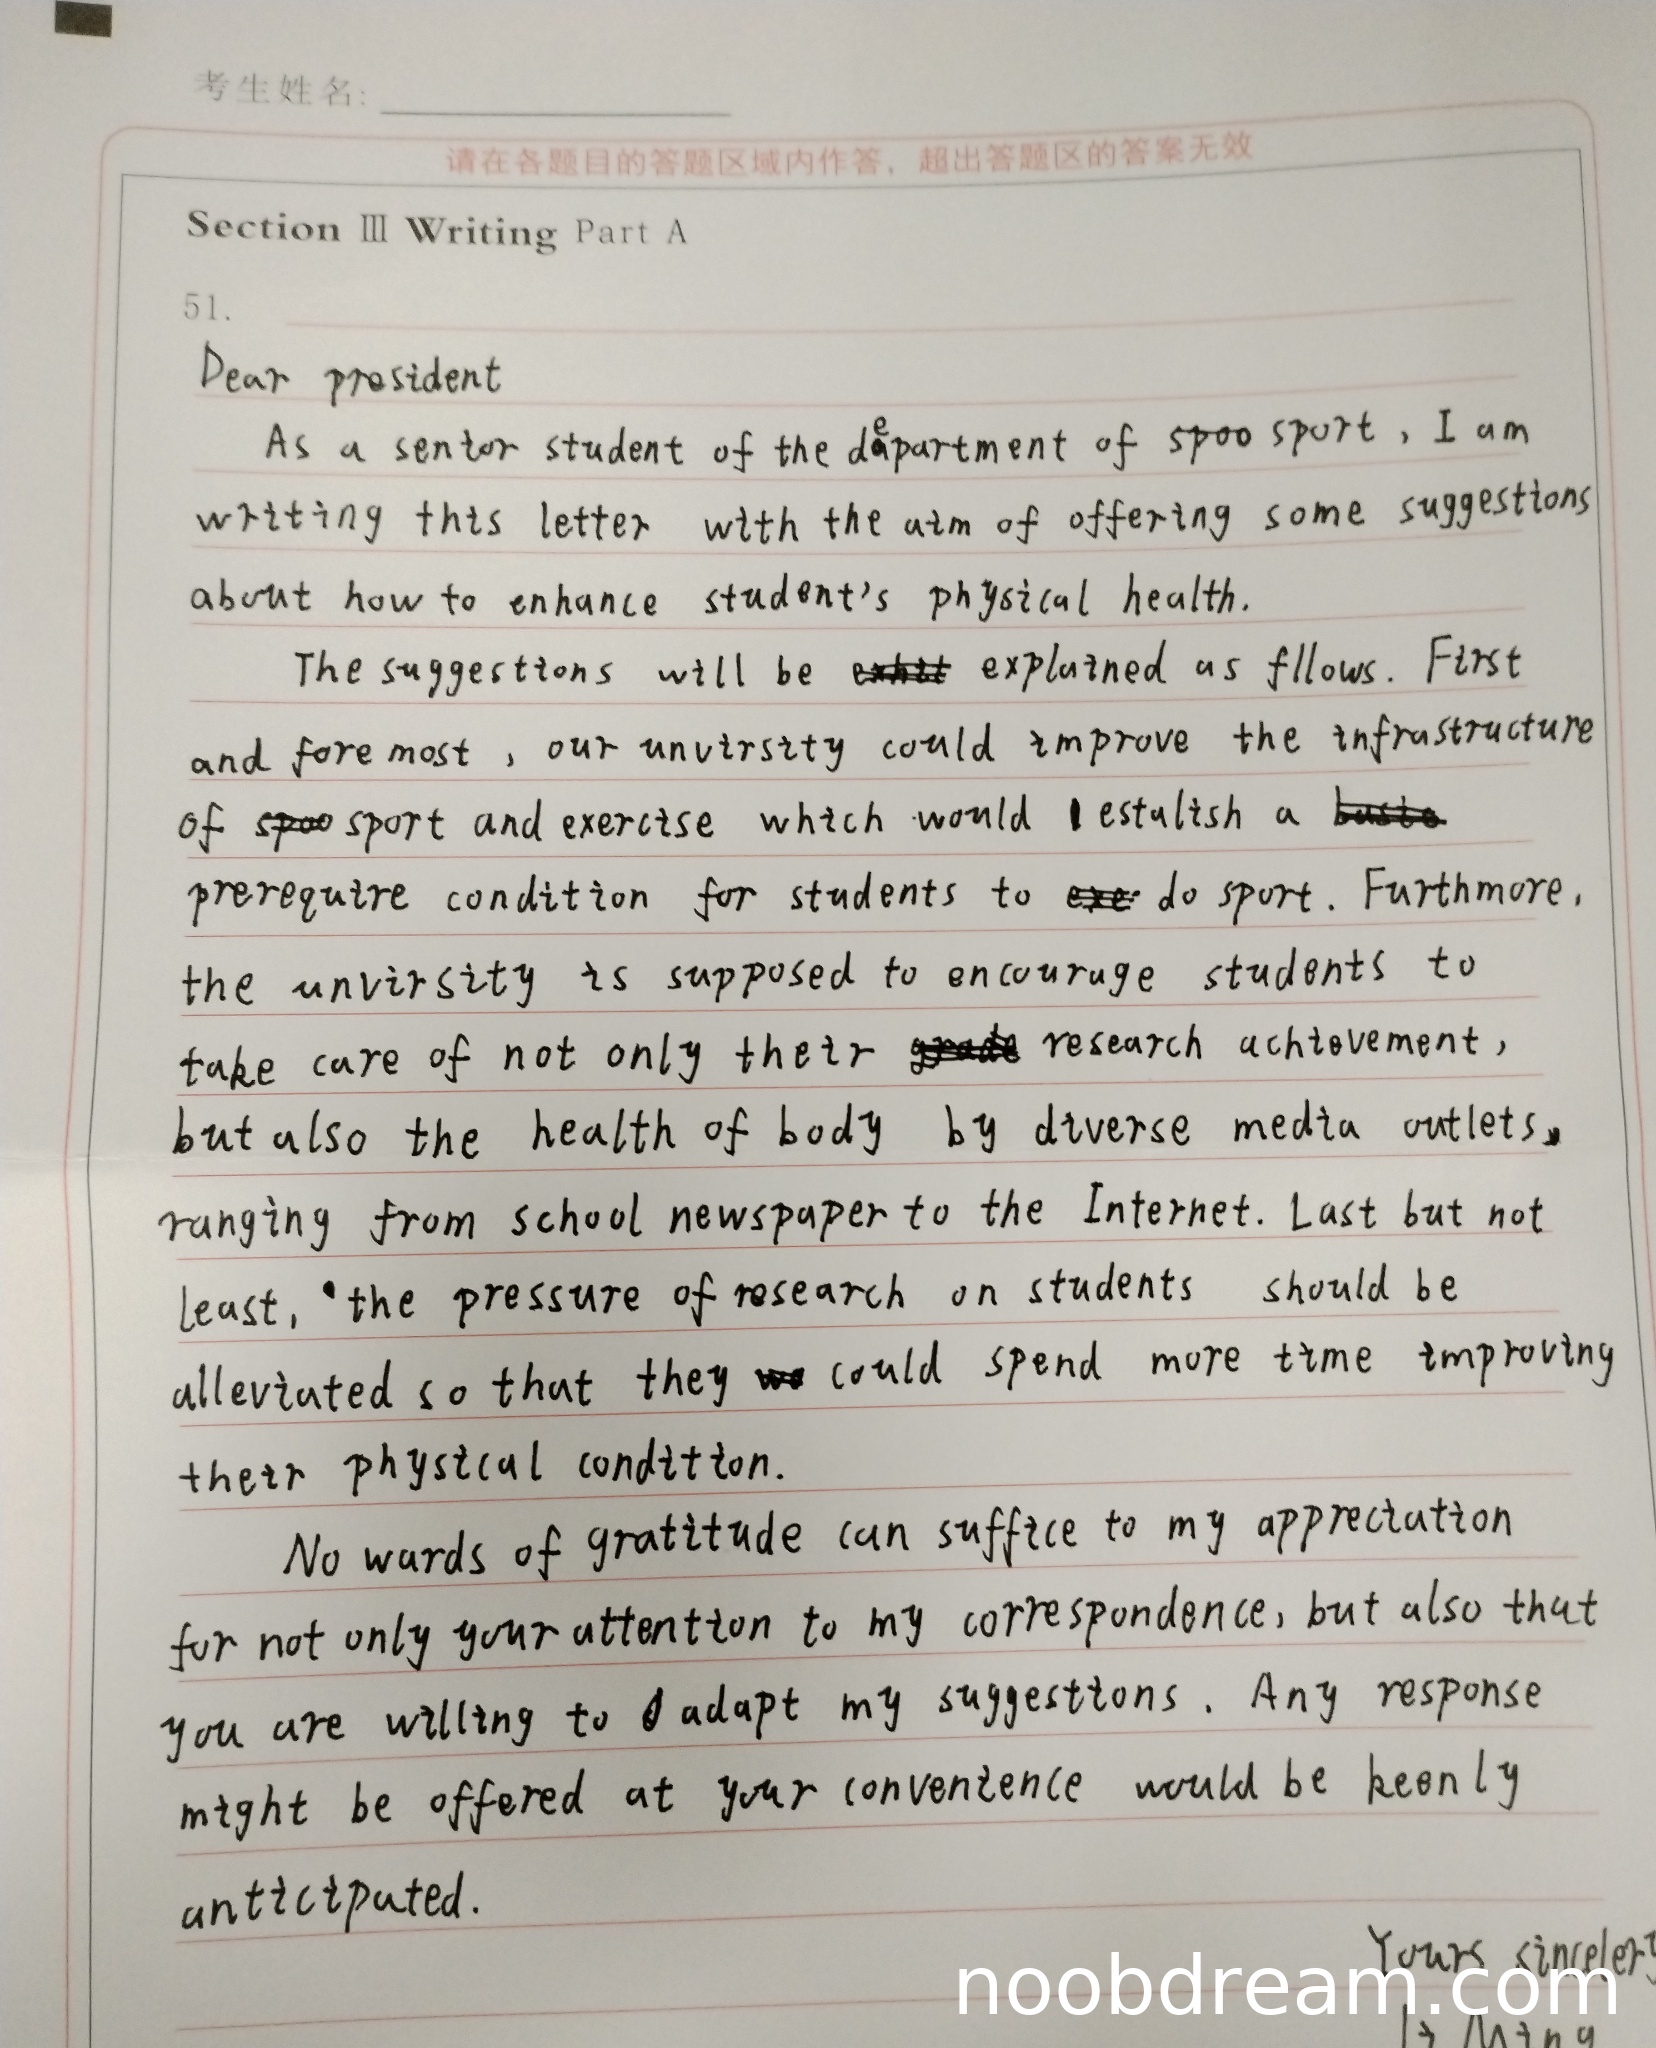 考生姓名:
请在各题目的答题区域内作答，超出答题区的答案无效
Section Ⅲ Writing Part A
51.
Dear president
As a senior student of the department of spoo sport, I am
writing this letter with the aim of offering some suggestions
about how to enhance student's physical health.
The suggestions will be exhit explained as fllows. First
and foremost, our unvirsity could improve the infrastructure
of spoo sport and exercise which would estalish a basic
prerequire condition for students to exe do sport. Furthmore,
the unvirsity is supposed to encourage students to
take care of not only their grade research achievement,
but also the health of body by diverse media outlets,
ranging from school newspaper to the Internet. Last but not
least, the pressure of research on students should be
alleviated so that they we could spend more time improving
their physical condition.
No wards of gratitude can suffice to my appreciation
for not only your attention to my correspondence, but also that
you are willing to adapt my suggestions. Any response
might be offered at your convenience would be keenly
anticipated.
Yours sincelery
Li Ming
noobdream.com